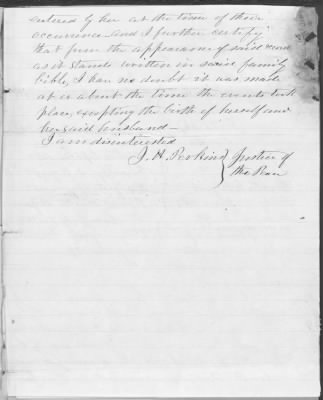 entered by her at the time of their
occurrence and I further certify
that from the appearance of said record
as it stands written in said family
bible, I have no doubt it was made
at or about the time the events took
place, excepting the birth of herself and
her said husband—
I am disinterested
J. H. Perkins } Justice of
the Peace